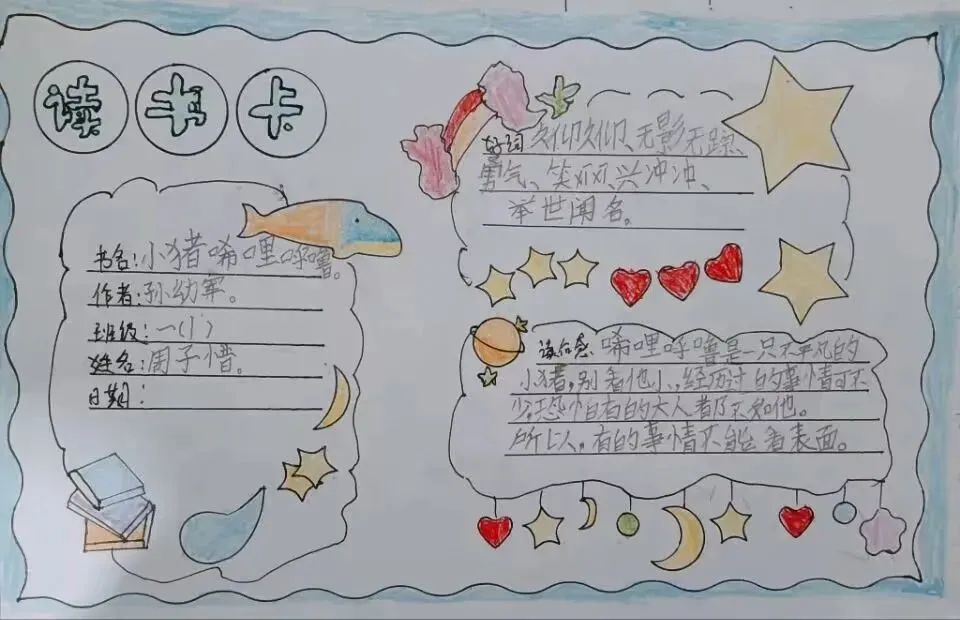 读书卡
书名:小猪唏哩呼噜。
作者:孙幼军。
班级:一
姓名:周子惜。
日期:
好词 久仰久仰、无影无踪、
勇气、笑、兴冲冲、
举世闻名。
读后感 唏哩呼噜是一只不平凡的
小猪,别看他小,经历过的事情可不
少,恐怕有的大人都不如他。
所以,有的事情不能看表面。